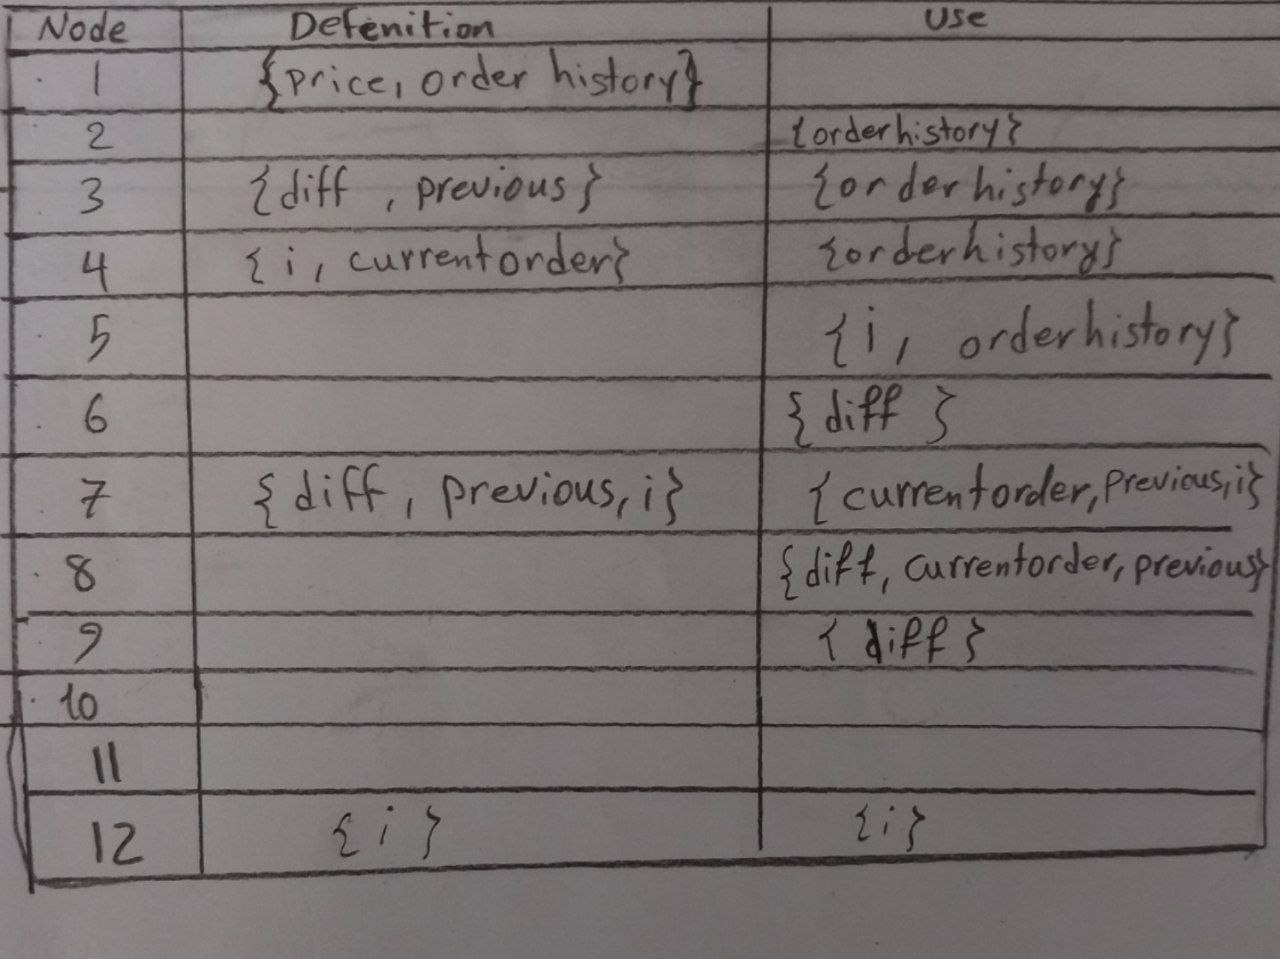 Node Defenition Use
1 {price, order history}
2 {orderhistory}
3 {diff , previous} {orderhistory}
4 {i, currentorder} {orderhistory}
5 {i, orderhistory}
6 {diff }
7 {diff, previous, i} {currentorder, previous, i}
8 {diff, currentorder, previous}
9 {diff}
10
11
12 {i} {i}